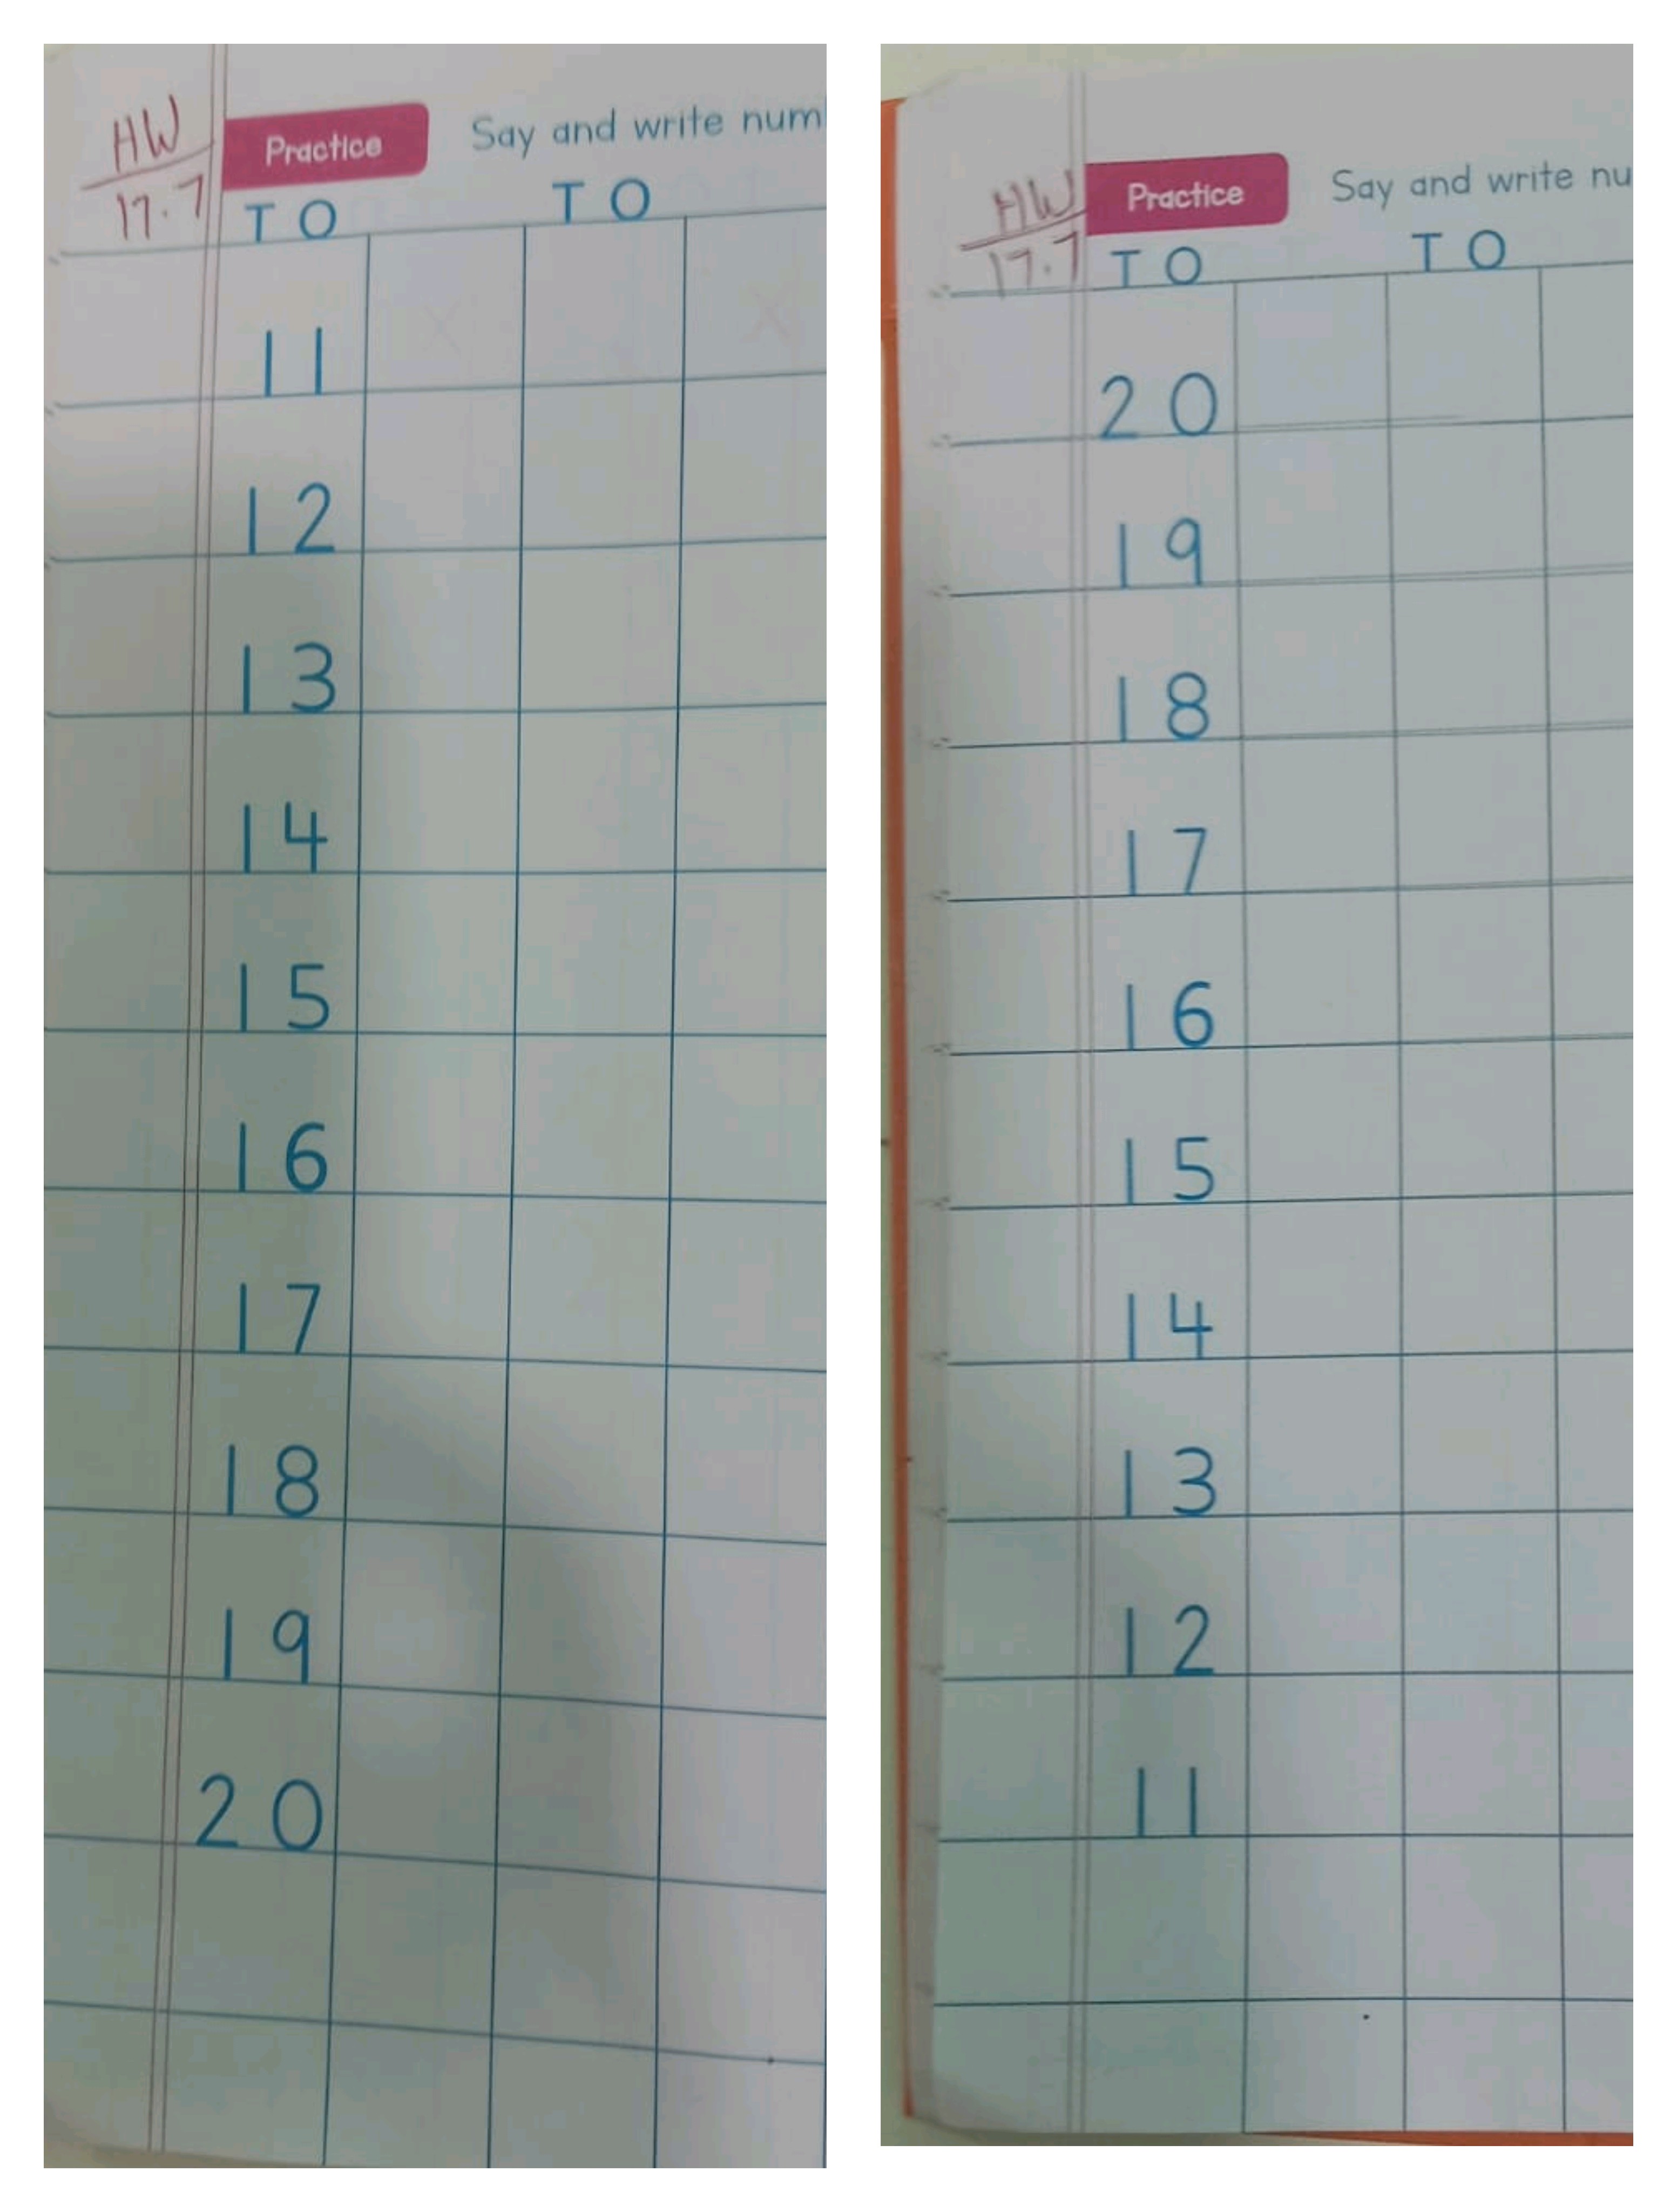 HW
17.7
Practice
Say and write num
T O
T O
11
12
13
14
15
16
17
18
19
20
HW
17.7
Practice
Say and write nu
T O
T O
20
19
18
17
16
15
14
13
12
11